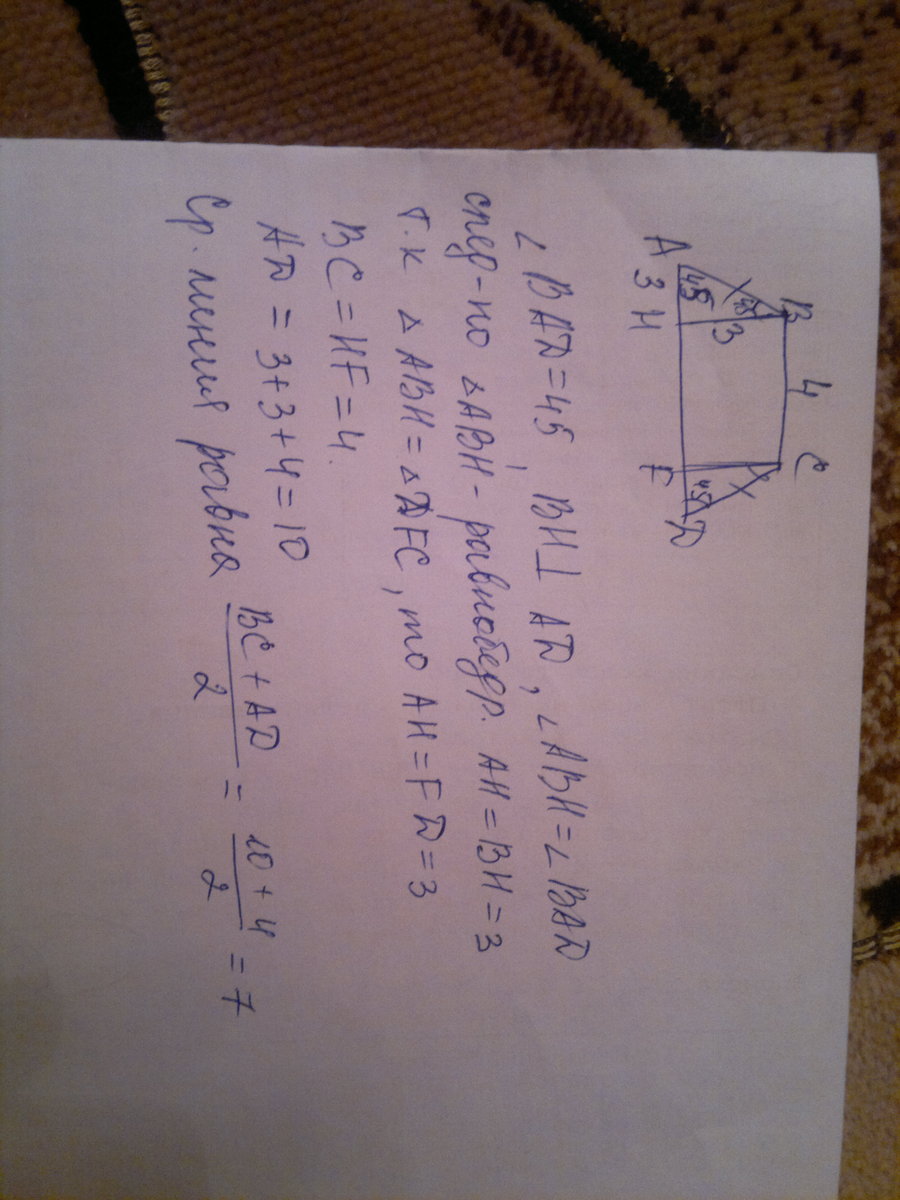 B 4 C
45 3 45 45
A 3 H F D
∠ BAD = 45, BH ⊥ AD, ∠ABH = ∠BAD
след-но △ABH - равнобедр. AH = BH = 3
т.к △ABH = △DFC, то AH = FD = 3
BC = HF = 4.
AD = 3+3+4 = 10
Ср. линия равна (BC + AD)/2 = (10 + 4)/2 = 7